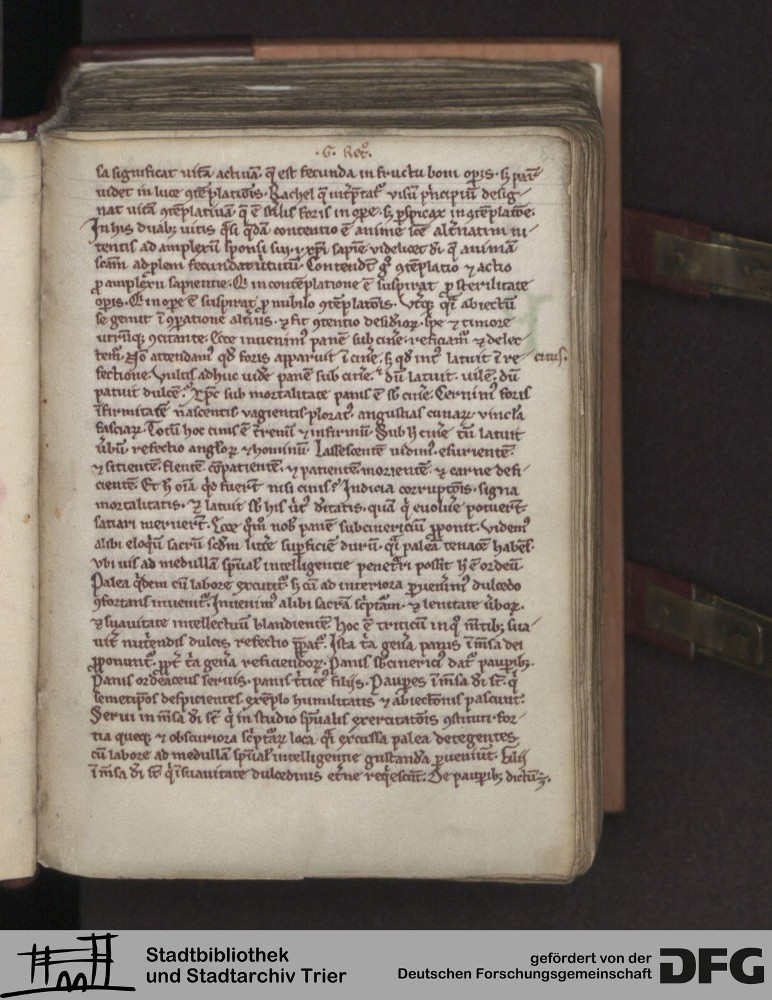 .G. Rec̄.
sa significat uitā actiuā. q̄ est fecunda in fructu boni op̄is. s; parū
uidet in luce ꝯtēplatiōis. Rachel q̄ int̄p̄tat᷑ uisū p̄ncipiū desig-
nat uitā ꝯtēplatiuā. q̄ ē st̄ilis foris in ope̅. s; p̄spicax in ꝯtēplatōe.
In his duab; uitis q̄si q̄dā contentio ē anime sc̄e alt̄natim ni-
tentis ad amplexū sponsi sui .i. xp̄i sapiē videlicet dī q̄ animā
sc̄am ad plem fecundat uirtutū. Contendt̄ g° ꝯtēplatio ⁊ actio
ꝓ amplexu sapientie. Q̄ in contēplatione ē suspirat ꝓ sterilitate
op̄is. Q̄ in ope̅ ē suspirat ꝓ nubilo ꝯtēplatōis. Vtq; q̄si abiectū
se gemit ī ꝯparatione alt̄ius. ⁊ fit ꝯtentio desid̄ioꝝ. spe ⁊ timore
utrūq; ꝯcitante. Ecce inuenim᷒ panē sub cin̄e. reficiam᷒ ⁊ delec-
tem᷒. Nō attendam᷒ qd̄ foris apparuit ī cin̄e. s; qd̄ int᷒ latuit ī re- cinis.
fectione. Vultis adhuc uide̅ panē sub cin̄e. dū latuit. uilē. dū
patuit dulcē. Xp̄c sub mortalitate panis ē sb̄ cin̄e. Cernim᷒ foris
īfirmitatē nascentis vagientis ploratū. angustias cunaꝝ vincla
fasciaꝝ. Totū hoc cinis ē t̄renū ⁊ infirmū. Sub h̄ cin̄e tn̄ latuit
ūbū. refectio angl̄oꝝ ⁊ hominū. Lassescentē uidim᷒. esurientē.
⁊ sitientē. flentē. cōpatientē. ⁊ patientē. morientē. ⁊ carne defi-
cientē. Et h̄ oīa qd̄ fuer̄t nisi cinis? Indicia corruptōis. signa
mortalitatis. ⁊ latuit sb̄ his ūt᷒ d̄itatis. quā q̄ euolue̅ potuer̄t
satiari meruer̄t. Ecce q̄m nob̄ panē subcinericiū ꝓponit. Videm᷒
alibi eloq̄ū sacrū sc̄dm litt̄e sup̄ficiē durū. q̄si paleā tenacē habēs.
vbi uix ad medullā sp̄ualis intelligentie penet̄ri possit h̄ ē ordeū.
Palea q̄dem cū labore excutit᷑. s; cū ad interiora ꝑuenim᷒ dulcedo
ꝯfortans inuenit᷑. Inuenim᷒ alibi sacrā sc̄ptam. ⁊ lenitate ūboꝝ.
⁊ suauitate intellectuū blandientē. hoc ē triticū in q° mītib; sua-
uit᷑ nut̄endis dulcis refectio p̄pat᷑. Ista t̄a gēra panis ī mēsa dei
ꝓponunt᷑. ꝓpt̄ t̄a gēra reficiendoꝝ. Panis sb̄cinerici᷒ dat᷑ paup̄ib;.
Panis ordeaceus seruis. panis t̄tice᷒ filijs. Paup̄es ī mēsa dī st̄. q̄
semetip̄os despicientes exēplo humilitatis ⁊ abiectōnis pascunt᷑.
Serui in mēsa dī st̄ q̄ in studio sp̄ualis exercitatōis ꝯstituti for-
tia queq; ⁊ obscuriora sc̄ptaꝝ loca. q̄si excussa palea detegentes
cū labore ad medullā sp̄ualis intelligentie gustandā ꝑueniūt. Filij
ī mēsa dī st̄ q̄ ī suauitate dulcedinis et̄ne req̄escūt. De paup̄ib; dictū ē.
Stadtbibliothek
und Stadtarchiv Trier
gefördert von der
Deutschen Forschungsgemeinschaft
DFG